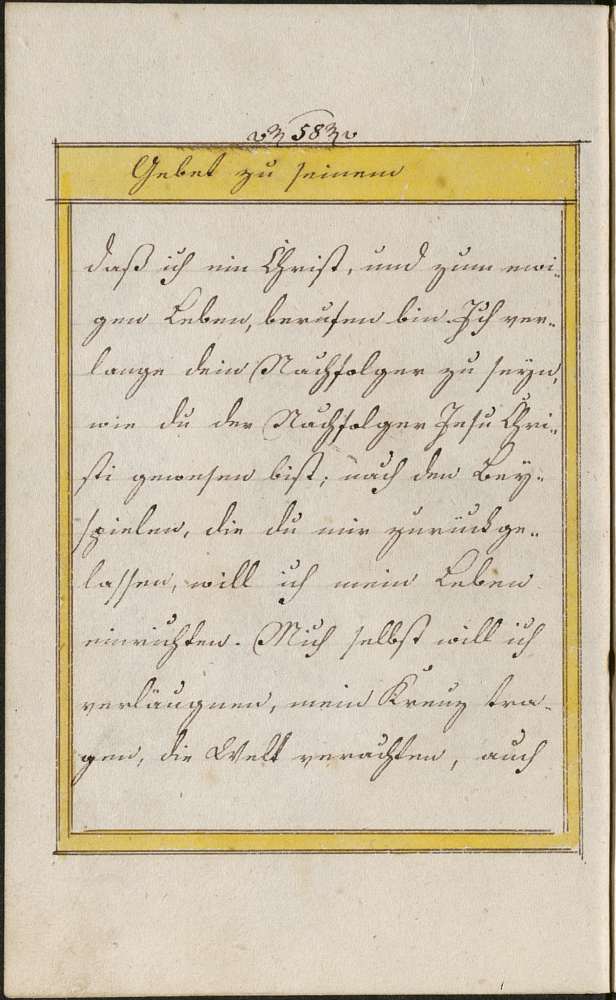 58
Gebet zu seinem
daß ich ein Christ, und zum ewi-
gen Leben, berufen bin. Ich ver-
lange dein Nachfolger zu seyn,
wie du der Nachfolger Jesu Chri-
sti gewesen bist; nach den Bey-
spielen, die du mir zurückge-
lassen, will ich mein Leben
einrichten. Mich selbst will ich
verläugnen, mein Kreuz tra-
gen, die Welt verachten, auch